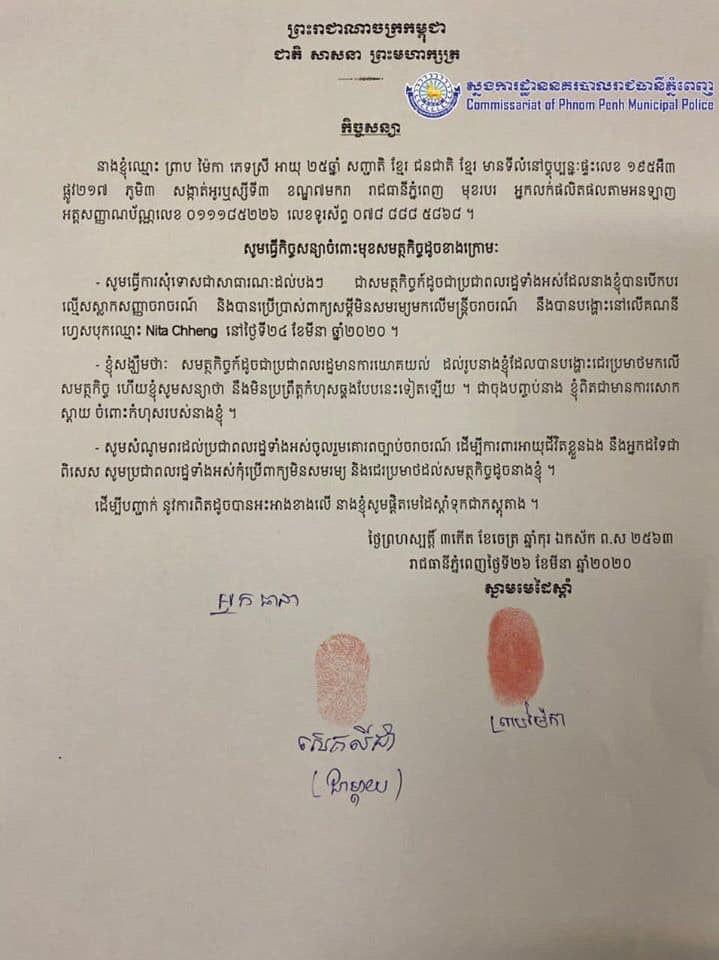 ព្រះរាជាណាចក្រកម្ពុជា
ជាតិ សាសនា ព្រះមហាក្សត្រ
ស្នងការដ្ឋាននគរបាលរាជធានីភ្នំពេញ
Commissariat of Phnom Penh Municipal Police
កិច្ចសន្យា
នាងខ្ញុំឈ្មោះ ព្រាប ម៉ៃកា ភេទស្រី អាយុ ២៥ឆ្នាំ សញ្ជាតិ ខ្មែរ ជនជាតិ ខ្មែរ មានទីលំនៅច្បុប្បន្នៈផ្ទះលេខ ១៩៥អឺ៣
ផ្លូវ២១៧ ភូមិ៣ សង្កាត់អូរឬស្សីទី៣ ខណ្ឌ៧មករា រាជធានីភ្នំពេញ មុខរបរ អ្នកលក់ផលិតផលតាមអនឡាញ
អត្តសញ្ញាណប័ណ្ណលេខ ០១១១៨៥២២៦ លេខទូរស័ព្ទ ០៧៨ ៨៨៨ ៥៨៦៨ ។
សូមធ្វើកិច្ចសន្យាចំពោះមុខសមត្ថកិច្ចដូចខាងក្រោមៈ
- សូមធ្វើការសុំទោសជាសាធារណៈដល់បងៗ ជាសមត្ថកិច្ចក៍ដូចជាប្រជាពលរដ្ឋទាំងអស់ដែលនាងខ្ញុំបានបើកបរ
ល្មើសស្លាកសញ្ញាចរាចរណ៍ និងបានប្រើប្រាស់ពាក្យសម្តីមិនសមរម្យមកលើមន្ត្រីចរាចរណ៍ នឹងបានបង្ហោះនៅលើគណនី
ហ្វេសប៊ុកឈ្មោះ Nita Chheng នៅថ្ងៃទី២៤ ខែមីនា ឆ្នាំ២០២០ ។
- ខ្ញុំសង្ឃឹមថាៈ សមត្ថកិច្ចក៍ដូចជាប្រជាពលរដ្ឋមានការយោគយល់ ដល់រូបនាងខ្ញុំដែលបានបង្ហោះជេរប្រមាថមកលើ
សមត្ថកិច្ច ហើយខ្ញុំសូមសន្យាថា នឹងមិនប្រព្រឹត្តកំហុសឆ្គងបែបនេះទៀតឡើយ ។ ជាចុងបញ្ចប់នាង ខ្ញុំពិតជាមានការសោក
ស្តាយ ចំពោះកំហុសរបស់នាងខ្ញុំ ។
- សូមសំណូមពរដល់ប្រជាពលរដ្ឋទាំងអស់ចូលរួមគោរពច្បាប់ចរាចរណ៍ ដើម្បីការពារអាយុជីវិតខ្លួនឯង នឹងអ្នកដទៃជា
ពិសេស សូមប្រជាពលរដ្ឋទាំងអស់កុំប្រើពាក្យមិនសមរម្យ និងជេរប្រមាថដល់សមត្ថកិច្ចដូចនាងខ្ញុំ ។
ដើម្បីបញ្ជាក់ នូវការពិតដូចបានអះអាងខាងលើ នាងខ្ញុំសូមផ្តិតមេដៃស្តាំទុកជាភស្តុតាង ។
ថ្ងៃព្រហស្បត្តិ៍ ៣កើត ខែចេត្រ ឆ្នាំកុរ ឯកស័ក ព.ស ២៥៦៣
រាជធានីភ្នំពេញថ្ងៃទី២៦ ខែមីនា ឆ្នាំ២០២០
ស្នាមមេដៃស្តាំ
ព្រាប ម៉ៃកា
(ជាម្តាយ)